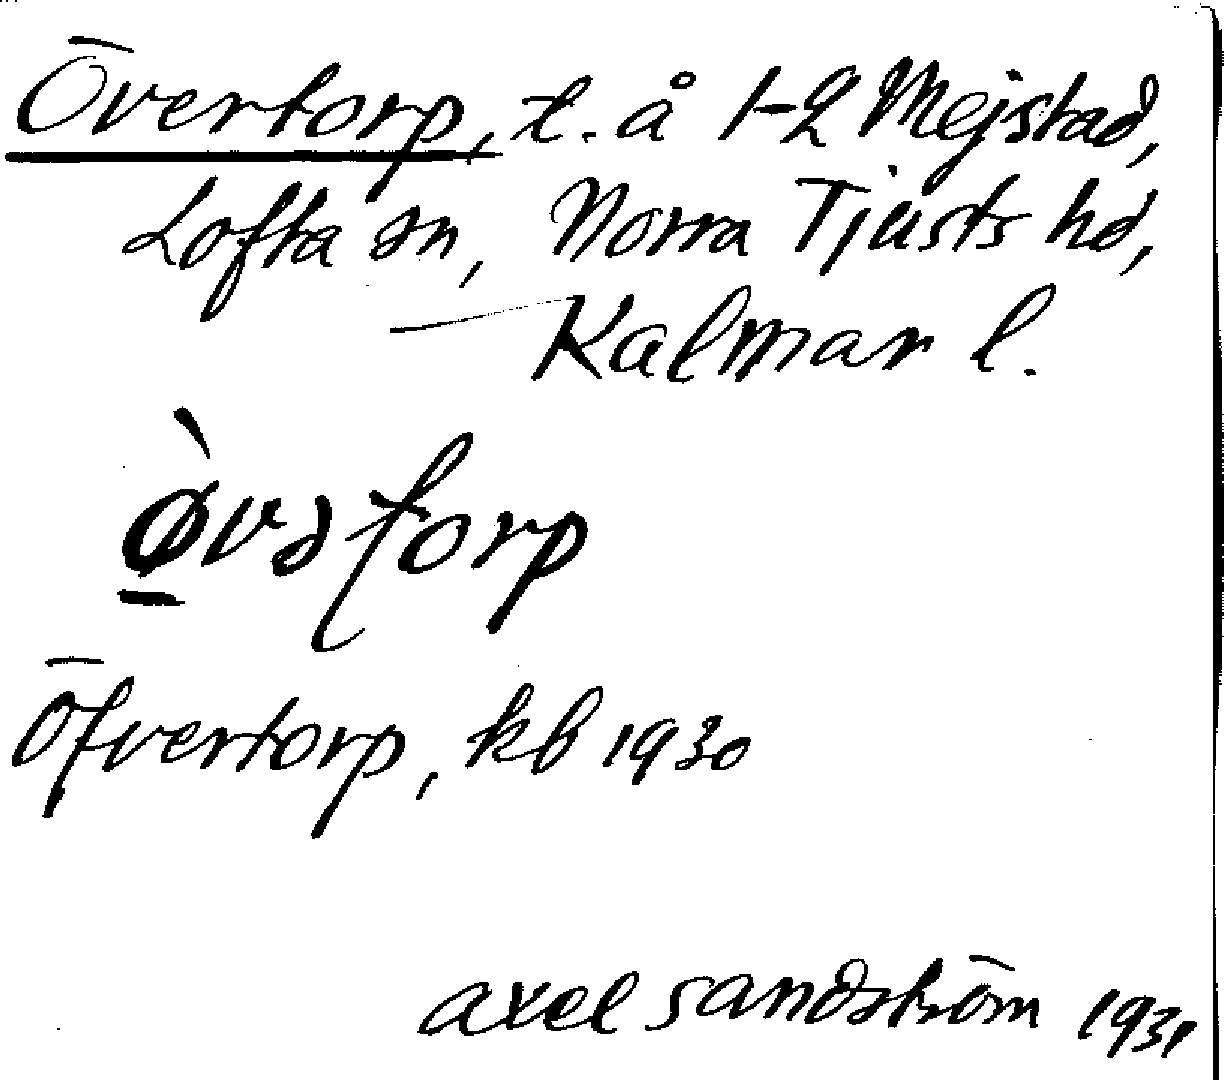 Övertorp, t. å 1-2 Mejstad,
Lofta sn, Norra Tjusts hd,
Kalmar l.
ø̱̀vətorp
Öfvertorp, kb 1930
axel sandström 1931